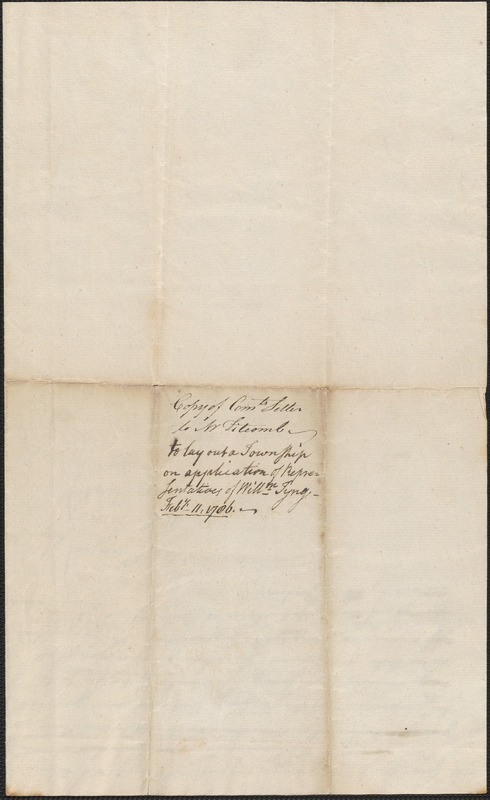 Copy of Comte Letter
to Mr Titcomb
to lay out a Township
on application of Repre-
sentatives of Willm Tyng,
Feby 11, 1786.